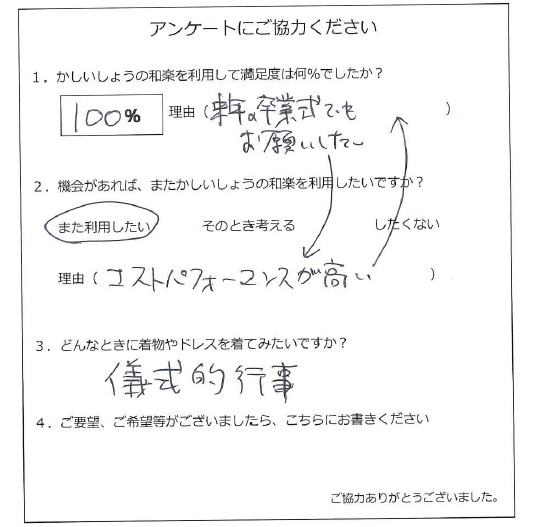 アンケートにご協力ください
1．かしいしょうの和楽を利用して満足度は何%でしたか？
100% 理由（来年の卒業式でも
お願いしたい ）
2．機会があれば、またかしいしょうの和楽を利用したいですか？
また利用したい そのとき考える したくない
理由（コストパフォーマンスが高い ）
3．どんなときに着物やドレスを着てみたいですか？
儀式的行事
4．ご要望、ご希望等がございましたら、こちらにお書きください
ご協力ありがとうございました。